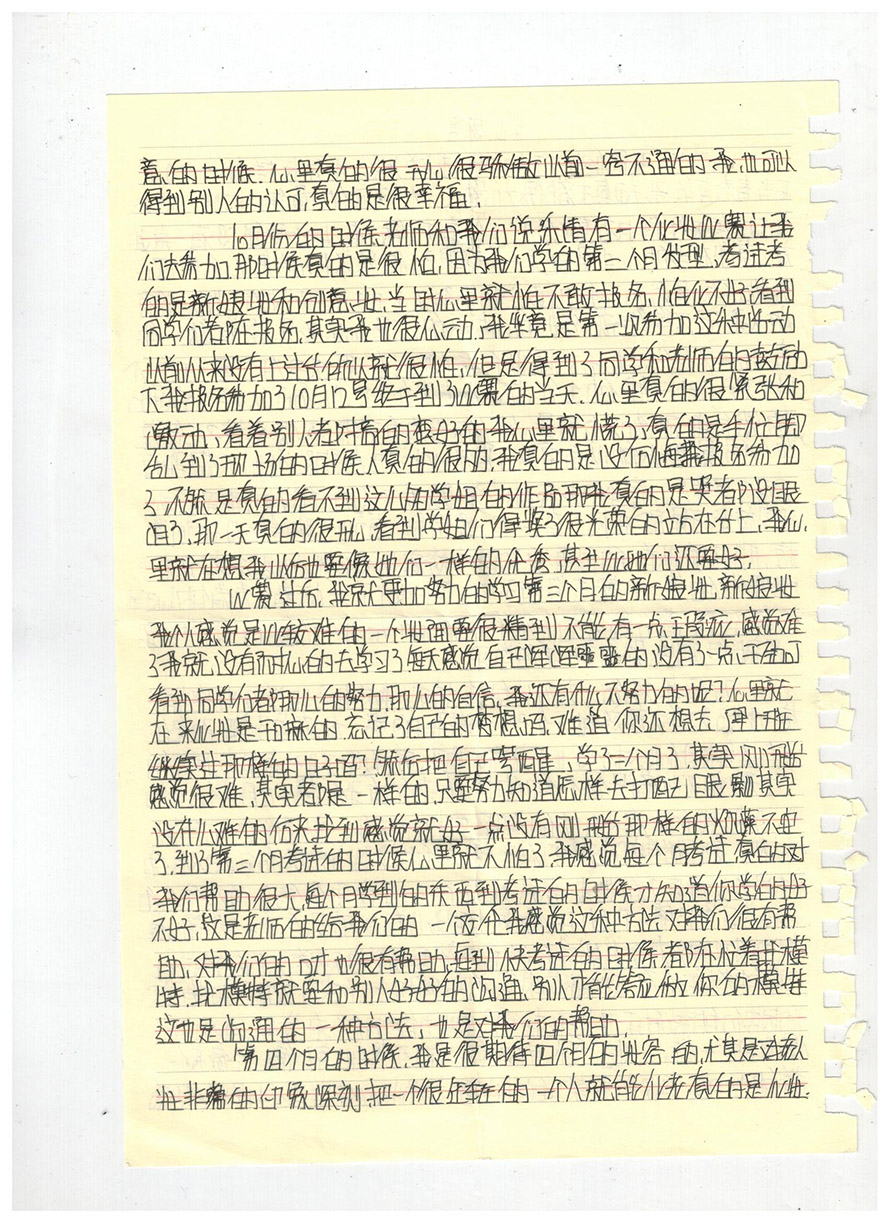 意的时候.心里真的很开心很骄傲以前一窍不通的我,也可以
得到别人的认可,真的是很幸福.
10月份的时候老师和我们说乐清有一个化妆比赛让我
们去参加.那时候真的是很怕,因为我们学的第二个月发型,考试考
的是新娘妆和创意妆,当时心里就怕不敢报名,怕化不好看到
同学们都在报名,其实我也很心动.我毕竟是第一次参加这种活动
以前从来没有上过台所以就很怕,但是得到了同学和老师的鼓励
下我报名参加了10月12号终于到了比赛的当天.心里真的很紧张和
激动,看着别人都对高的蛮好的我心里就慌了,真的是手忙脚
乱到了现场的时候人真的很多,我真的是没后悔我报名参加
了不然是真的看不到这么多学姐的作品那我真的是哭都没眼
泪了,那一天真的很开心,看到学姐们得奖了很光荣的立在台上,我心
里就在想我以后也要像她们一样的优秀甚至比她们还要好.
比赛过后,我就更加努力的学习第三个月的新娘妆,新娘妆
我个人感觉是比较难的一个妆面要很精到不能有一点瑕疵,感觉难
了我就没有耐心的去学习了每天感觉自己浑浑噩噩的没有了一点干劲可
看到同学们都那么的努力,那么的自信,我还有什么不努力的呢?心里就
在来化妆是干嘛的,忘记了自己的梦想吗,难道你还想去上班
继续过那样的日子吗?然后把自己骂醒,学了三个月了,其实刚开始
感觉很难,其实都是一样的,只要努力知道怎样去打配眼影其实
没什么难的后来找到感觉就好一点没有刚开始那样的烦燥不安
了,到了第三个月考试的时候心里就不怕了我感觉每个月考试,真的对
我们帮助很大,每个月学到的东西到考试的时候才知道你学的好
不好,这是老师的给我们的一个我感觉这种方法对我们很有帮
助,对我们的口才也很有帮助,每到快考试的时候都在忙着找模
特,找模特就要和别人好好的沟通,别人才能答应做你的模特
这也是沟通的一种方法,也是对我们的帮助.
第四个月的时候,我是很期待四个月的妆容的,尤其是对老人
妆非常的印象深刻把一个很年轻的一个人就能化老真的是化妆.